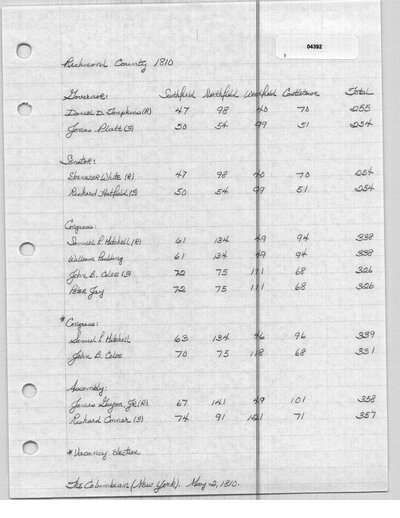 04392
Richmond County 1810
Governor: Southfield Northfield Westfield Castletown Total
Daniel D. Tompkins (R) 47 98 40 70 255
Jonas Platt (F) 50 54 99 51 254
Senator:
Ebenezer White (R) 47 98 70 254
Richard Hatfield (F) 50 54 99 51 254
Congress:
Samuel L. Mitchell (R) 61 134 49 94 338
William Paulding 61 134 49 94 338
John B. Coles (F) 72 75 111 68 326
Peter Jay 72 75 111 68 326
*Congress:
Samuel L. Mitchell 63 134 46 96 339
John B. Coles 70 75 118 68 331
Assembly:
James Guyon, Jr. (R) 67 141 49 101 358
Richard Conner (F) 74 91 121 71 357
*Vacancy election
The Columbian (New York). May 2, 1810.